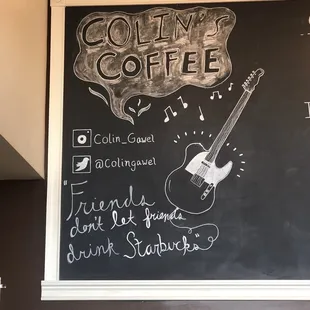 COLIN'S
COFFEE
Colin_Gawel
@Colingawel
"Friends
don't let friends
drink Starbucks"